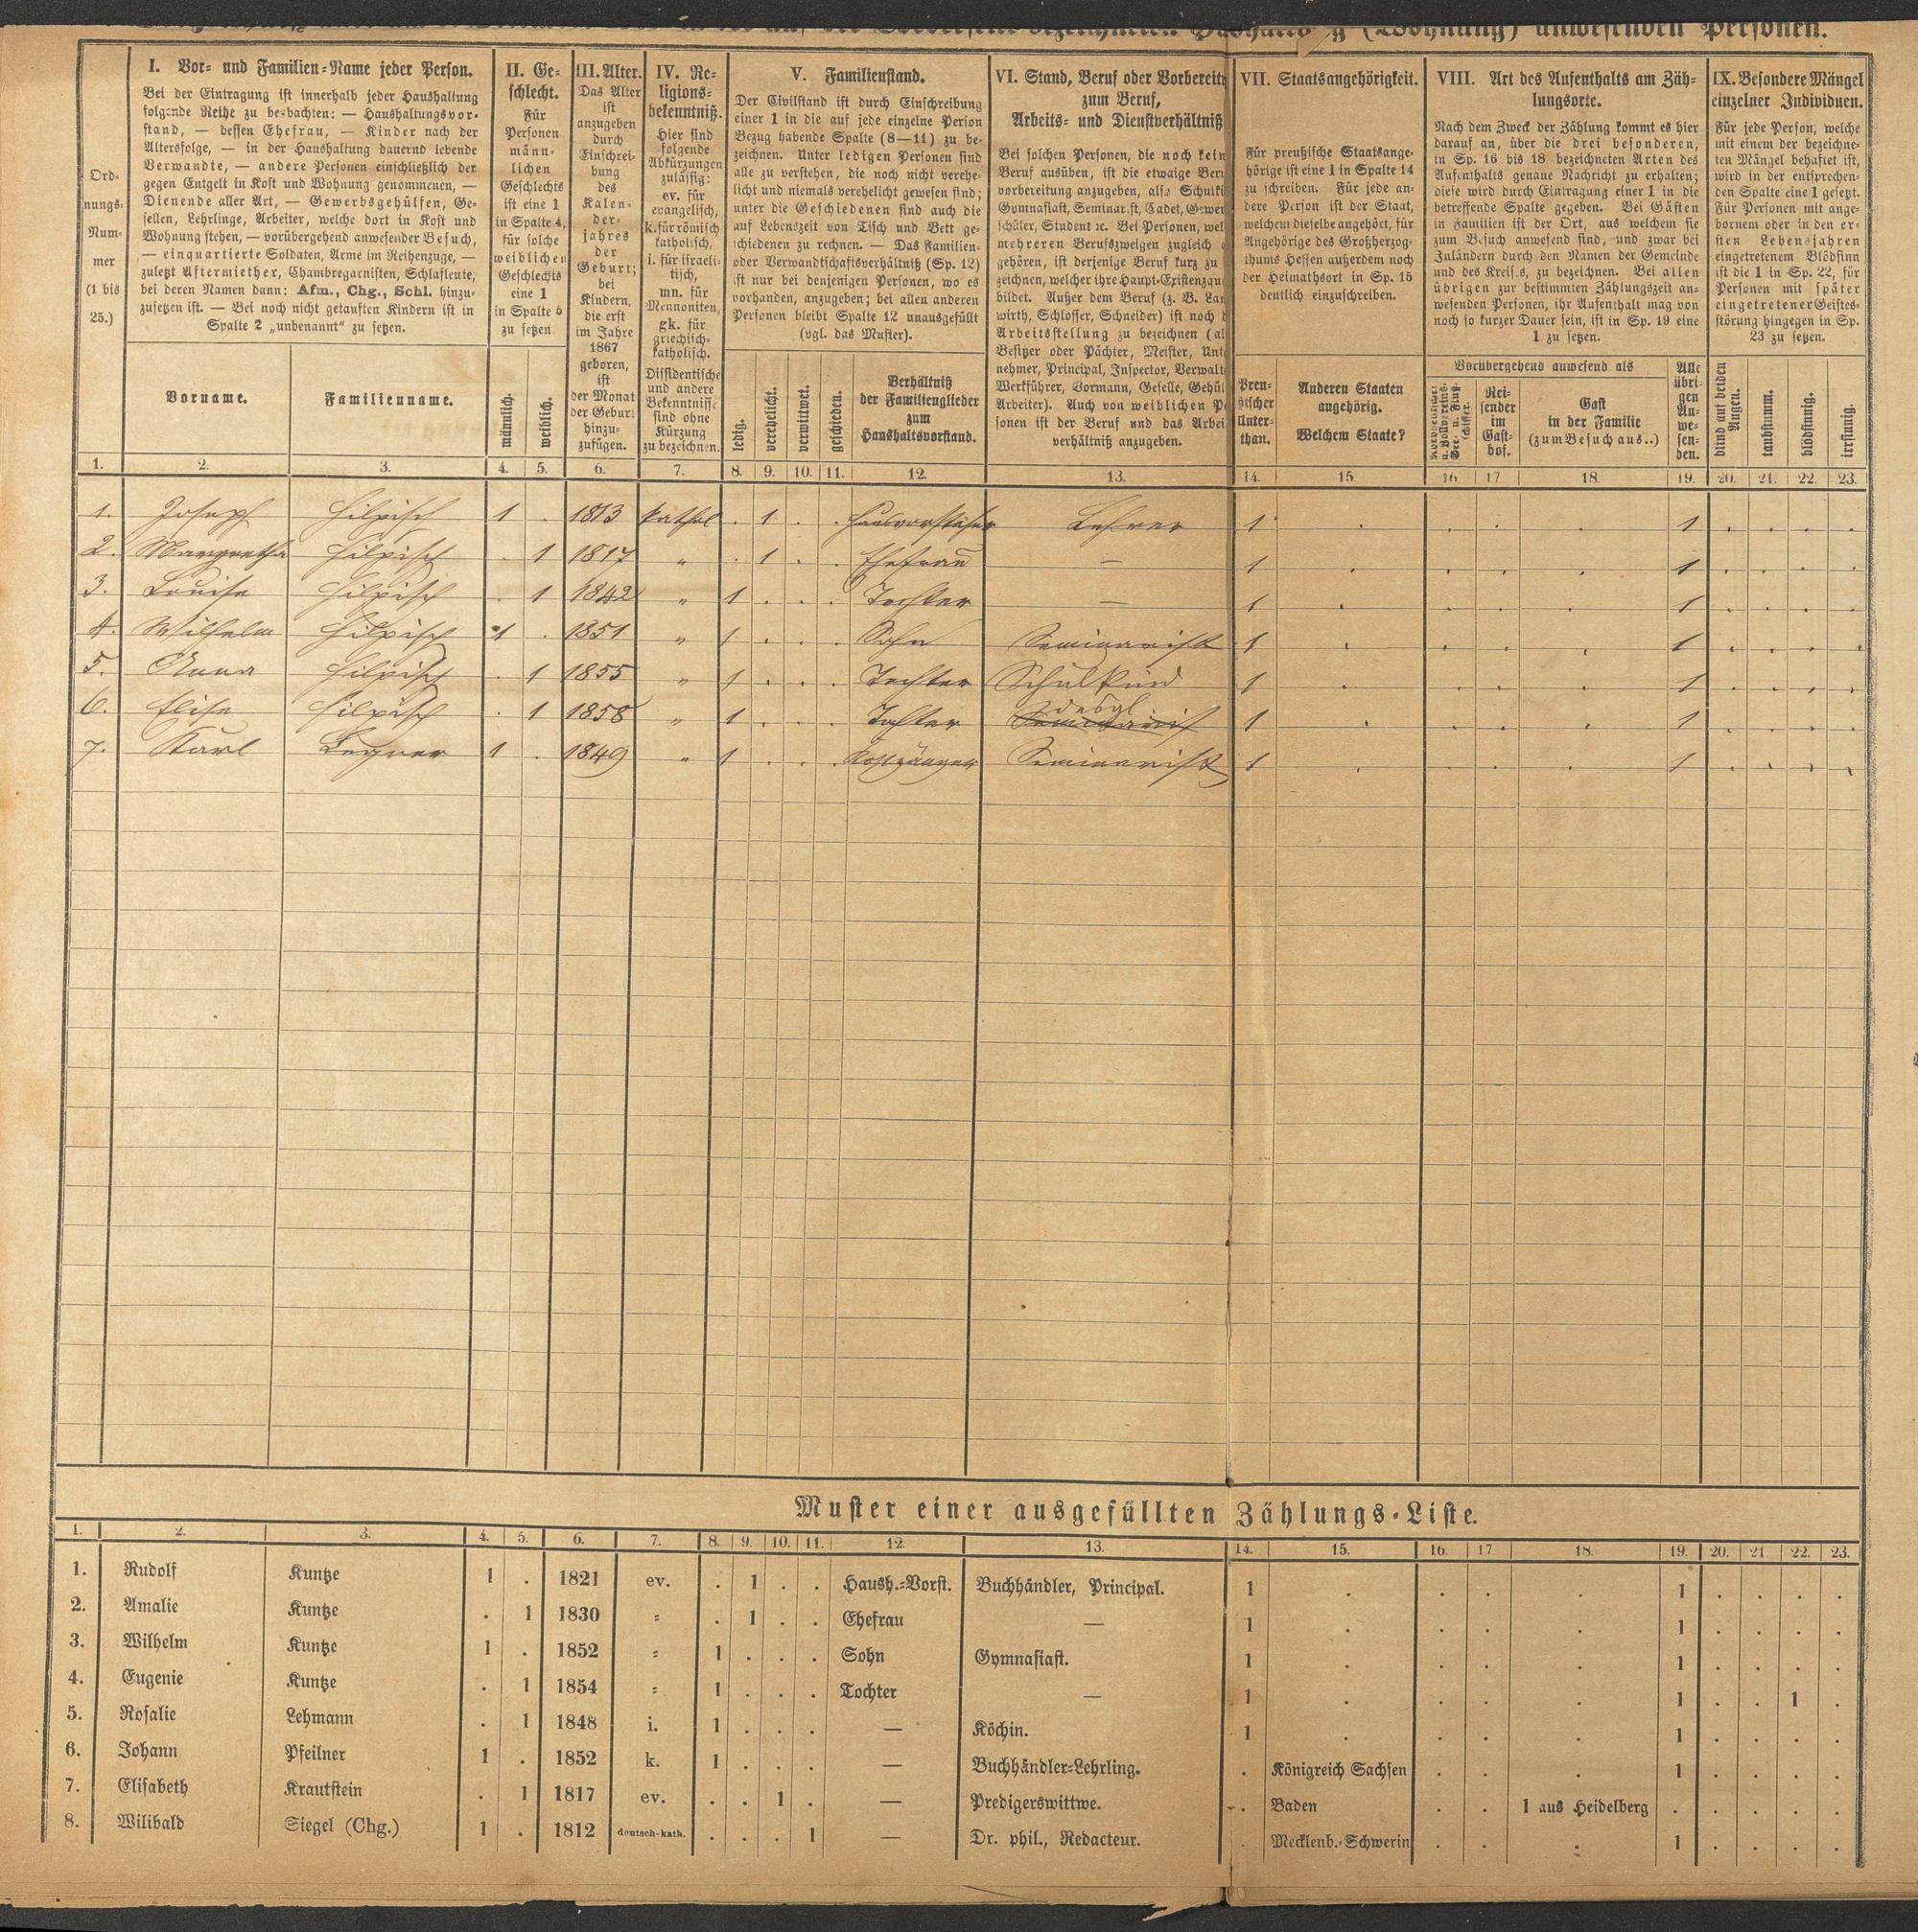 (Wohnung) anwesenden Personen.
I. Vor- und Familien-Name jeder Person.
Bei der Eintragung ist innerhalb jeder Haushaltung
folgende Reihe zu beobachten: — Haushaltungsvor-
stand, — dessen Ehefrau, — Kinder nach der
Altersfolge, — in der Haushaltung dauernd lebende
Verwandte, — andere Personen einschließlich der
gegen Entgelt in Kost und Wohnung genommenen, —
Dienende aller Art, — Gewerbsgehülfen, Ge-
sellen, Lehrlinge, Arbeiter, welche dort in Kost und
Wohnung stehen, — vorübergehend anwesender Besuch,
— einquartierte Soldaten, Arme im Reihenzuge, —
zuletzt Aftermiether, Chambregarnisten, Schlafleute,
bei deren Namen dann: Afm., Chg., Schl. hinzu-
zusetzen ist. — Bei noch nicht getauften Kindern ist in
Spalte 2 „unbenannt“ zu setzen.
Ord-
nungs-
Num-
mer
(1 bis
25.)
Vorname.
Familienname.
II. Ge-
schlecht.
Für
Personen
männ-
lichen
Geschlechts
ist eine 1
in Spalte 4,
für solche
weiblichen
Geschlechts
eine 1
in Spalte 5
zu setzen.
männlich.
weiblich.
III. Alter.
Das Alter
ist
anzugeben
durch
Einschrei-
bung
des
Kalen-
der-
jahres
der
Geburt;
bei
Kindern,
die erst
im Jahre
1867
geboren,
ist
der Monat
der Geburt
hinzu-
zufügen.
IV. Re-
ligions-
bekenntniß.
Hier sind
folgende
Abkürzungen
zulässig:
ev. für
evangelisch,
k. für römisch
katholisch,
i. für israeli-
tisch,
mn. für
Mennoniten,
gk. für
griechisch-
katholisch.
Dissidentische
und andere
Bekenntnisse
sind ohne
Kürzung
zu bezeichnen.
V. Familienstand.
Der Civilstand ist durch Einschreibung
einer 1 in die auf jede einzelne Person
Bezug habende Spalte (8—11) zu be-
zeichnen. Unter ledigen Personen sind
alle zu verstehen, die noch nicht verehe-
licht und niemals verehelicht gewesen sind;
unter die Geschiedenen sind auch die
auf Lebenszeit von Tisch und Bett ge-
schiedenen zu rechnen. — Das Familien-
oder Verwandtschaftsverhältniß (Sp. 12)
ist nur bei denjenigen Personen, wo es
vorhanden, anzugeben; bei allen anderen
Personen bleibt Spalte 12 unausgefüllt
(vgl. das Muster).
ledig.
verehelicht.
verwittwet.
geschieden.
Verhältniß
der Familienglieder
zum
Haushaltsvorstand.
VI. Stand, Beruf oder Vorbereit
zum Beruf,
Arbeits- und Dienstverhältniß
Bei solchen Personen, die noch kein
Beruf ausüben, ist die etwaige Ber
vorbereitung anzugeben, also Schulki
Gymnasiast, Seminarist, Cadet, Gewer
schüler, Student ꝛc. Bei Personen, wel
mehreren Berufszweigen zugleich
gehören, ist derjenige Beruf kurz zu
zeichnen, welcher ihre Haupt-Existenzqu
bildet. Außer dem Beruf (z. B. Lan
wirth, Schlosser, Schneider) ist noch d
Arbeitsstellung zu bezeichnen (al
Besitzer oder Pächter, Meister, Unte
nehmer, Principal, Inspector, Verwalt
Werkführer, Vormann, Geselle, Gehül
Arbeiter). Auch von weiblichen Pe
sonen ist der Beruf und das Arbei
verhältniß anzugeben.
VII. Staatsangehörigkeit.
Für preußische Staatsange-
hörige ist eine 1 in Spalte 14
zu schreiben. Für jede an-
dere Person ist der Staat,
welchem dieselbe angehört, für
Angehörige des Großherzog-
thums Hessen außerdem noch
der Heimathsort in Sp. 15
deutlich einzuschreiben.
Preu-
ßischer
Unter-
than.
Anderen Staaten
angehörig.
Welchem Staate?
VIII. Art des Aufenthalts am Zäh-
lungsorte.
Nach dem Zweck der Zählung kommt es hier
darauf an, über die drei besonderen,
in Sp. 16 bis 18 bezeichneten Arten des
Aufenthalts genaue Nachricht zu erhalten;
diese wird durch Eintragung einer 1 in die
betreffende Spalte gegeben. Bei Gästen
in Familien ist der Ort, aus welchem sie
zum Besuch anwesend sind, und zwar bei
Inländern durch den Namen der Gemeinde
und des Kreises, zu bezeichnen. Bei allen
übrigen zur bestimmten Zählungszeit an-
wesenden Personen, ihr Aufenthalt mag von
noch so kurzer Dauer sein, ist in Sp. 19 eine
1 zu setzen.
Vorübergehend anwesend als
Rei-
sender
im
Gast-
hof.
Gast
in der Familie
(zum Besuch aus..)
Alle
übri-
gen
An-
we-
sen-
den.
IX. Besondere Mängel
einzelner Individuen.
Für jede Person, welche
mit einem der bezeichne-
ten Mängel behaftet ist,
wird in der entsprechen-
den Spalte eine 1 gesetzt.
Für Personen mit ange-
bornem oder in den er-
sten Lebensjahren
eingetretenem Blödsinn
ist die 1 in Sp. 22, für
Personen mit später
eingetretener Geistes-
störung hingegen in Sp.
23 zu setzen.
blind auf beiden
Augen.
taubstumm.
blödsinnig.
irrsinnig.
1. 2. 3. 4. 5. 6. 7. 8. 9. 10. 11. 12. 13. 14. 15. 16. 17. 18. 19. 20. 21. 22. 23.
1. Joseph Hilpisch 1 . 1813 kathol . 1 . . Hausvorsteher Lehrer 1 . . . . 1 . . . .
2. Margretha Hilpisch . 1 1817 „ . 1 . . Ehefrau — 1 . . . . 1 . . . .
3. Louise Hilpisch . 1 1842 „ 1 . . . Tochter — 1 . . . . 1 . . . .
4. Wilhelm Hilpisch 1 . 1851 „ 1 . . . Sohn Seminarist 1 . . . . 1 . . . .
5. Anna Hilpisch . 1 1855 „ 1 . . . Tochter Schulkind 1 . . . . 1 . . . .
6. Elise Hilpisch . 1 1858 „ 1 . . . Tochter desgl 1 . . . . 1 . . . .
7. Karl Legner 1 . 1849 „ 1 . . . Kostgänger Seminarist 1 . . . . 1 . . . .
Muster einer ausgefüllten Zählungs-Liste.
1. 2. 3. 4. 5. 6. 7. 8. 9. 10. 11. 12. 13. 14. 15. 16. 17. 18. 19. 20. 21. 22. 23.
1. Rudolf Kuntze 1 . 1821 ev. . 1 . . Haush.-Vorst. Buchhändler, Principal. 1 . . . . 1 . . . .
2. Amalie Kuntze . 1 1830 = . 1 . . Ehefrau — 1 . . . . 1 . . . .
3. Wilhelm Kuntze 1 . 1852 = 1 . . . Sohn Gymnasiast. 1 . . . . 1 . . . .
4. Eugenie Kuntze . 1 1854 = 1 . . . Tochter — 1 . . . . 1 . . 1 .
5. Rosalie Lehmann . 1 1848 i. 1 . . . — Köchin. 1 . . . . 1 . . . .
6. Johann Pfeilner 1 . 1852 k. 1 . . . — Buchhändler-Lehrling. . Königreich Sachsen . . . 1 . . . .
7. Elisabeth Krautstein . 1 1817 ev. . . 1 . — Predigerswittwe. . Baden . . 1 aus Heidelberg . . . . .
8. Wilibald Siegel (Chg.) 1 . 1812 deutsch-kath. . . . 1 — Dr. phil., Redacteur. . Mecklenb.-Schwerin . . . 1 . . . .